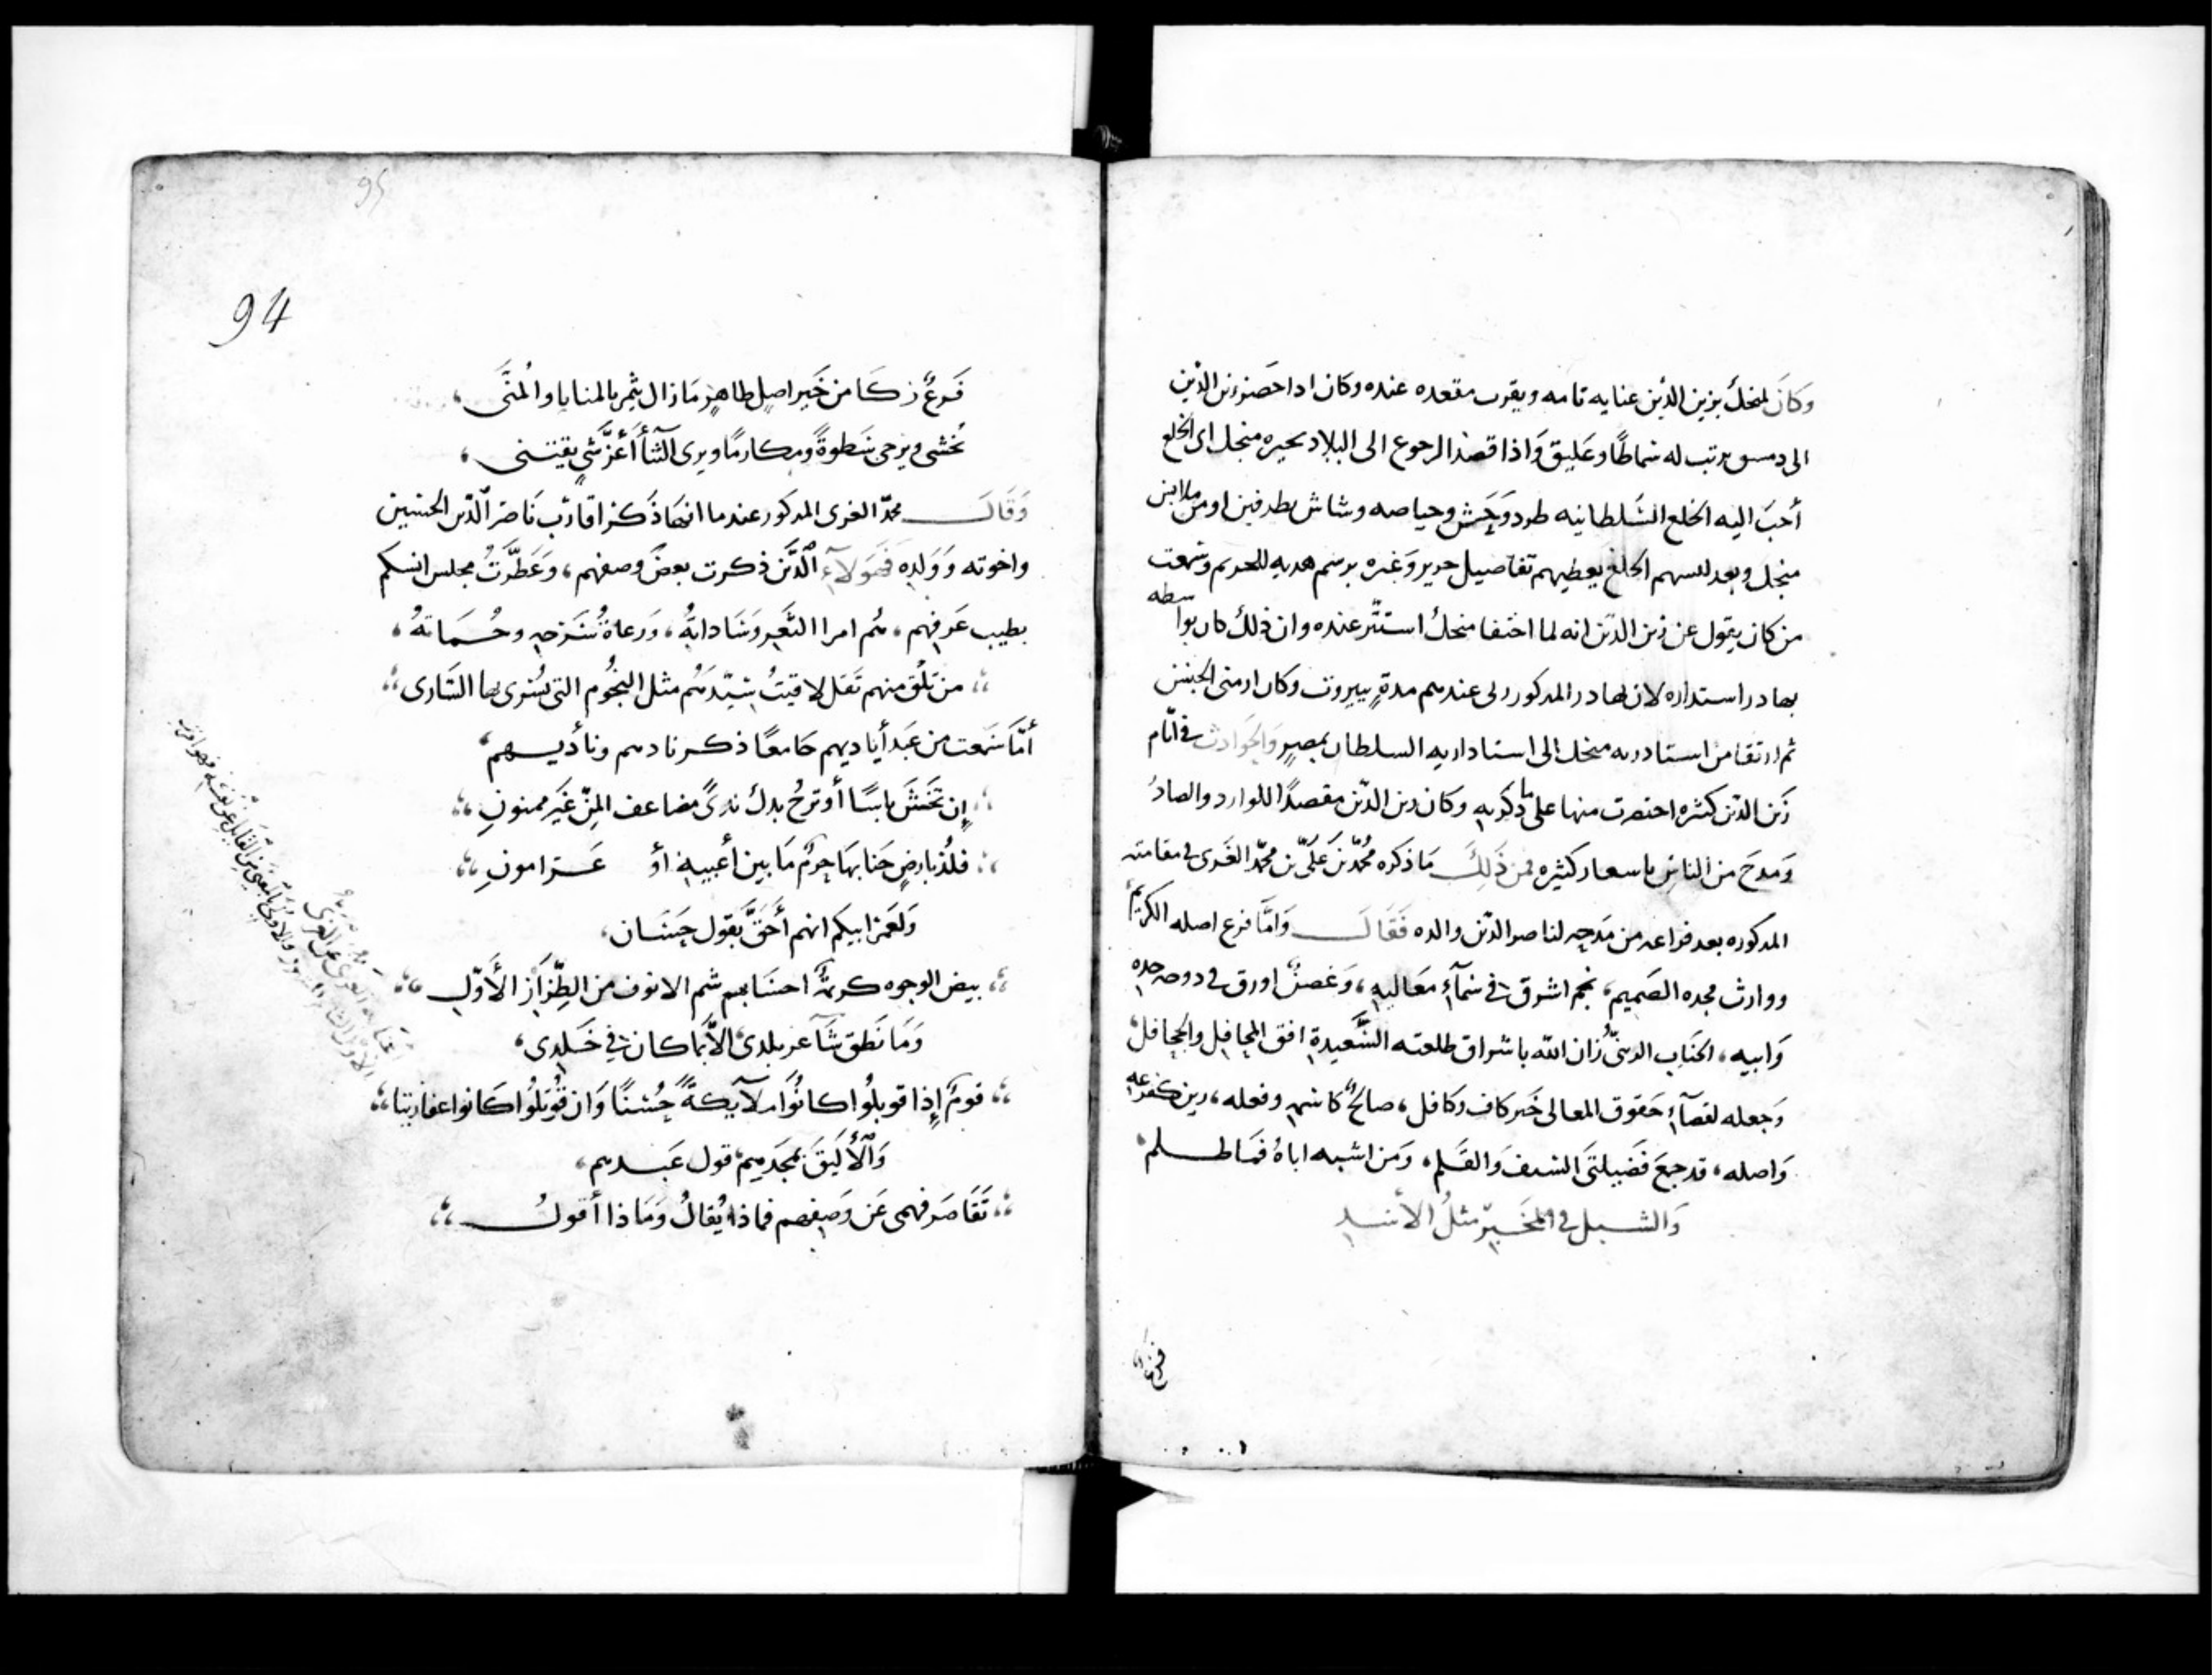 وكان لمنجك بزين الدين عنايه تامه ويقرب مقعده عنده وكان اذا حضر زين الدين
الى دمسق يرتب له سماطًا وعليق واذا قصد الرجوع الى البلاد يخيره منجك اى الخلع
أحب اليه الخلع السلطانيه طرد وحش وحياصه وشاش بطرفين او من ملابس
منجك وبعد لبسهم الخلع يعطيهم تفاصيل حرير وغيره برسم هديه للحريم وسمعت
من كان يقول عن زين الدين انه لما اختفا منجك استتر عنده وان ذلك كان بواسطه
بهادر استداره لان بهادر المذكور ربى عندهم مدةٍ ببيروت وكان ارمنى الجنس
ثم ارتقا من استادريه منجك الى استاداريه السلطان بمصرٍ والحوادث فى ايّام
زين الدين كثيره اختصرت منها على ما ذكر به وكان زين الدين مقصدًا للوارد والصادر
ومدح من الناس باسعار كثيره فمن ذلك ما ذكره محمد بن علىّ بن محمد الغزى فى مقامته
المذكوره بعد فراغه من مدحه لناصر الدين والده فقال واما فرع اصله الكريم
ووارث مجده الصميم، نجم اشرق فى سمآء معاليه، وغصنٌ اورق فى دوحه جده
وابيه، الجناب الزينىُّ زان الله باشراق طلعته السَّعيدة افق المحافل والجحافل،
وجعله لقضآء حقوق المعالى خير كاف وكافل، صالحٌ كاسمه وفعله، زين كفرعه
واصله، قد جمع فضيلتى السيف والقلم، ومن اشبه اباهُ فما ظلم،
والشبل فى المخبر مثلُ الأسد
فرعٌ
94
95
فرعٌ زكا من خير اصلٍ طاهرٍ ما زال يثمر بالمنايا والمنى،
يُخشى ويرجى سطوةً ومكارمًا ويرى الثنآ أعزّ شىٍ يقتنى،
وقال محمد الغزى المذكور عندما انهى ذكر اقارب ناصر الدين الحسين
واخوته وولده فهولآء الذين ذكرت بعض وصفهم، وعطّرتُ مجلس انسكم
بطيب عرفهم، هم امرا الثغر وساداتهُ، ورعاةُ سرحه وحُماتهُ،
من تلقَ منهم تقل لاقيتُ سيّدهُم مثل النجُوم التى يُسرى بها السّارى
أمّا سمعت من عبد أياديهم جامعًا ذكر ناديهم وناديهم،
إن تخشَ باسًا أو ترجُ بذلَ ندىً مضاعف المنّ غير ممنونِ
فلُذ بارضٍ جنابها حرمٌ ما بين أعبيهِ أو عرامونِ
ولعمرُ ابيكم انهم أحقّ بقول حسّان،
بيض الوجوه كريمةٌ احسابهم شم الانوف من الطِّرازِ الأوّلِ
وما نطق شآعر بلدى الاّ بما كان فى خلدى،
قومٌ إذا قوبلُوا كانُوا ملآيكةً حُسنًا وان قوتلُوا كانوا عفاريتا
والأليق بمجدهم قول عبدهم،
تقاصر فهمى عن وصفهم فماذا يُقالُ وماذا أقولُ